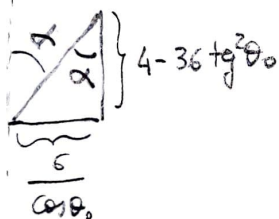 α
α 4-36 tg²θ₀
6
cosθ₀